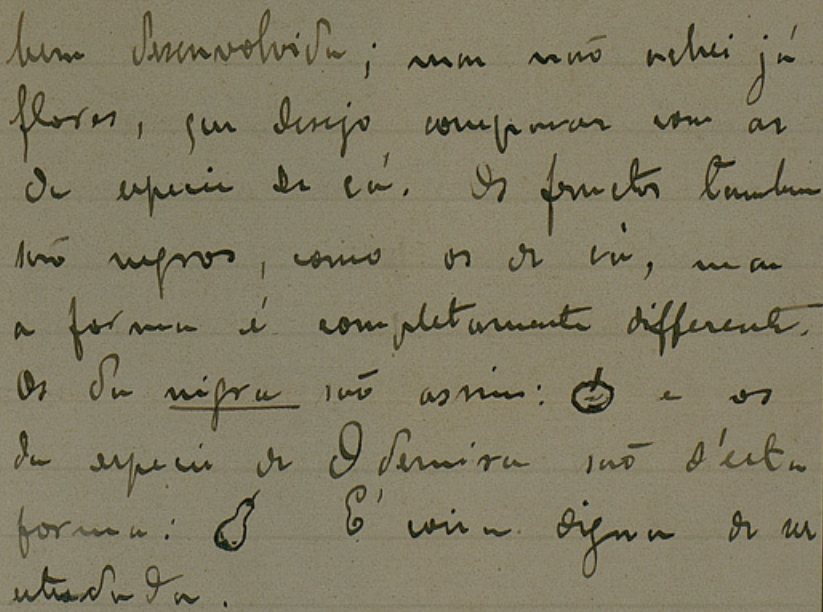 bem desenvolvida; mas não achei já
flores, que desejo comparar com as
da especie de cá. Os fructos tambem
são negros, como os de cá, mas
a forma é completamente differente.
Os da nigra são assim: e os
da especie de Odemira são d'esta
forma: E' coisa digna de ser
estudada.